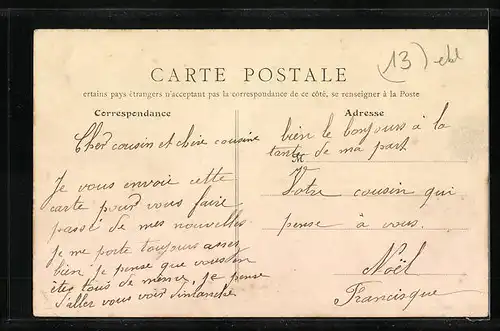 13) ebl
CARTE POSTALE
ertains pays étrangers n'acceptant pas la correspondance de ce côté, se renseigner à la Poste
Correspondance
Cher cousin et chère cousine
Je vous envoir cette
carte pour vous faire
passé de mes nouvelles
je me porte toujours assez
bien je pense que vous en
êtes tous de même, je pense
d'aller vous voir dimanche
Adresse
bien le bonjours à la
tante de ma part
M
Votre cousin qui
pense à vous.
Noël
Francisque